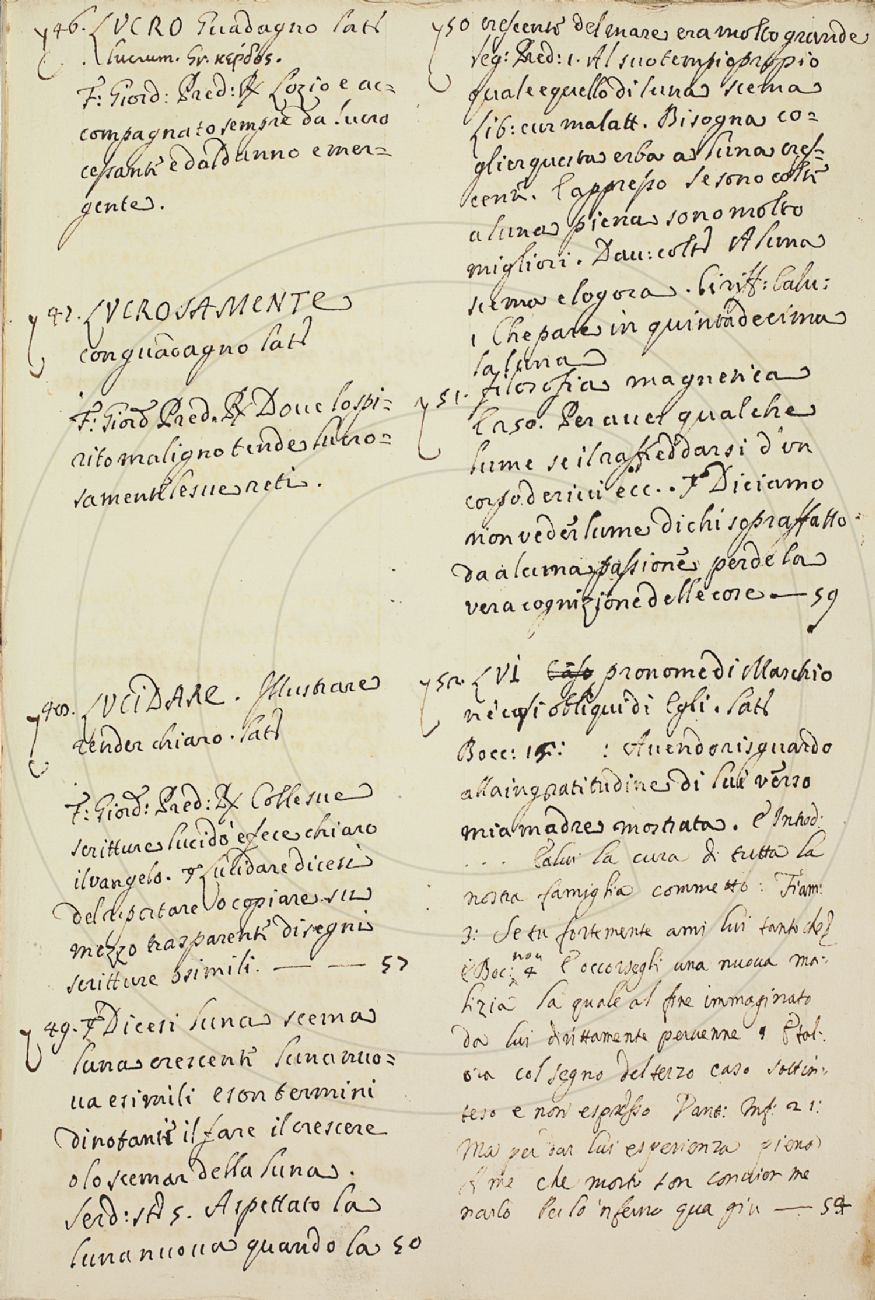 46. LUCRO Guadagno lat.
lucrum. Gr. κέρδος.
F: Giord: Pred: R. L'ozio e ac=
compagnato sempre da lucro
cessante e dal danno emer=
gente.
47. LUCROSAMENTE
con guadagno lat.
F: Giord. Pred. R. Dove lo spi=
rito maligno tende lucro=
samente le sue reti.
48. LUCIDARE. Illustrare
render chiaro. lat.
F: Giord: Pred: R. Colle sue
scritture lucidò e fece chiaro
il vangelo. Lucidare dicesi
del riportare o copiare su
mezzo trasparente disegni
scritture o simili. — — 57
49. Dicesi luna scema
luna crescente luna nuo=
ua e simili e son termini
dinotanti il fare il crescere
o lo scemar della luna.
Serd: st. 5. Aspettato la
luna nuoua quando la 50
50 crescente del mare era molto grande
seg: Pred: 1. Al suo tempio proprio
quale e quello di luna scema
Lib: cur malatt. Bisogna co=
glier questa erba a luna cres-
cente. E appresso se sono colte
a luna piena sono molto
migliori. Dau: colt. A luna
scema e logora. Ciriff: Calu:
1 Che pare in quintadecima
la luna
51. filosofia magnetica
E 250. Per auer qualche
lume se il raffreddarsi d'un
corpo de ricci ecc. Diciamo
non veder lume di chi sopraffatto
da alcuna passione perde la
vera cognizione delle cose — 59
52. LUI pronome di Maschio
ne' casi obliqui di Egli. lat.
Bocc: 15: : Auendo risguardo
alla ingratitudine di lui verso
mia madre mostrata. E Introd:
. . . . E a lui la cura di tutta la
nostra famiglia commetto: Fiam:
3: Se tu fortemente ami lui tanto che
E Boc: nou 4 E occorsegli una nuoua ma-
lizia la quale al fine immaginato
da lui dirittamente peruenne E tal-
ora col segno del terzo caso sottin-
teso e non espresso Dant: Inf: 21:
Ma per dar lui esperienza piena
A me che morto son conuien me
narlo Per lo 'nferno qua giu — 54